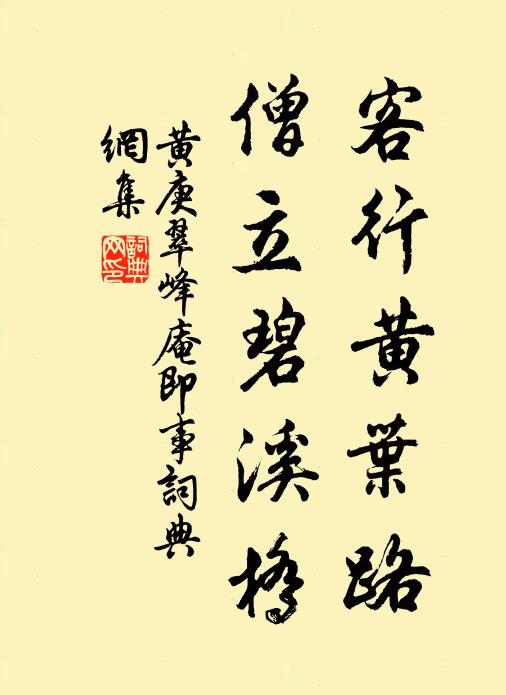 客行黄葉路
僧立碧溪橋
黄庚翠峰庵即事詞典
網集
詞典
网印